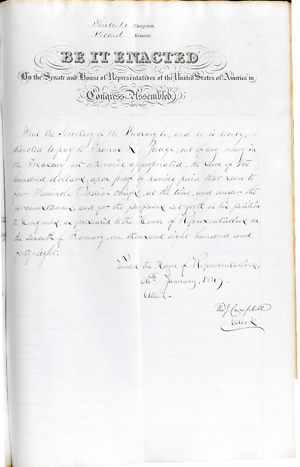 Thirtieth Congress
Second Session
BE IT ENACTED
By the Senate and House of Representatives of the United States of America in
Congress Assembled,
That the Secretary of the Treasury be, and he is hereby,
directed to pay to Thomas R. out of any money in
the Treasury not otherwise appropriated, the sum of two
hundred dollars, upon proof of having paid that sum to
four Seminole Indian chiefs, at the time, and under the
circumstances, and for the purposes set forth in his petition
to Congress, as presented to the House of Representatives on
the seventh of February, one thousand eight hundred and
forty-eight.
Passed the House of Representatives,
January, 1849.
Attest.
Th. J. Campbell
Clerk